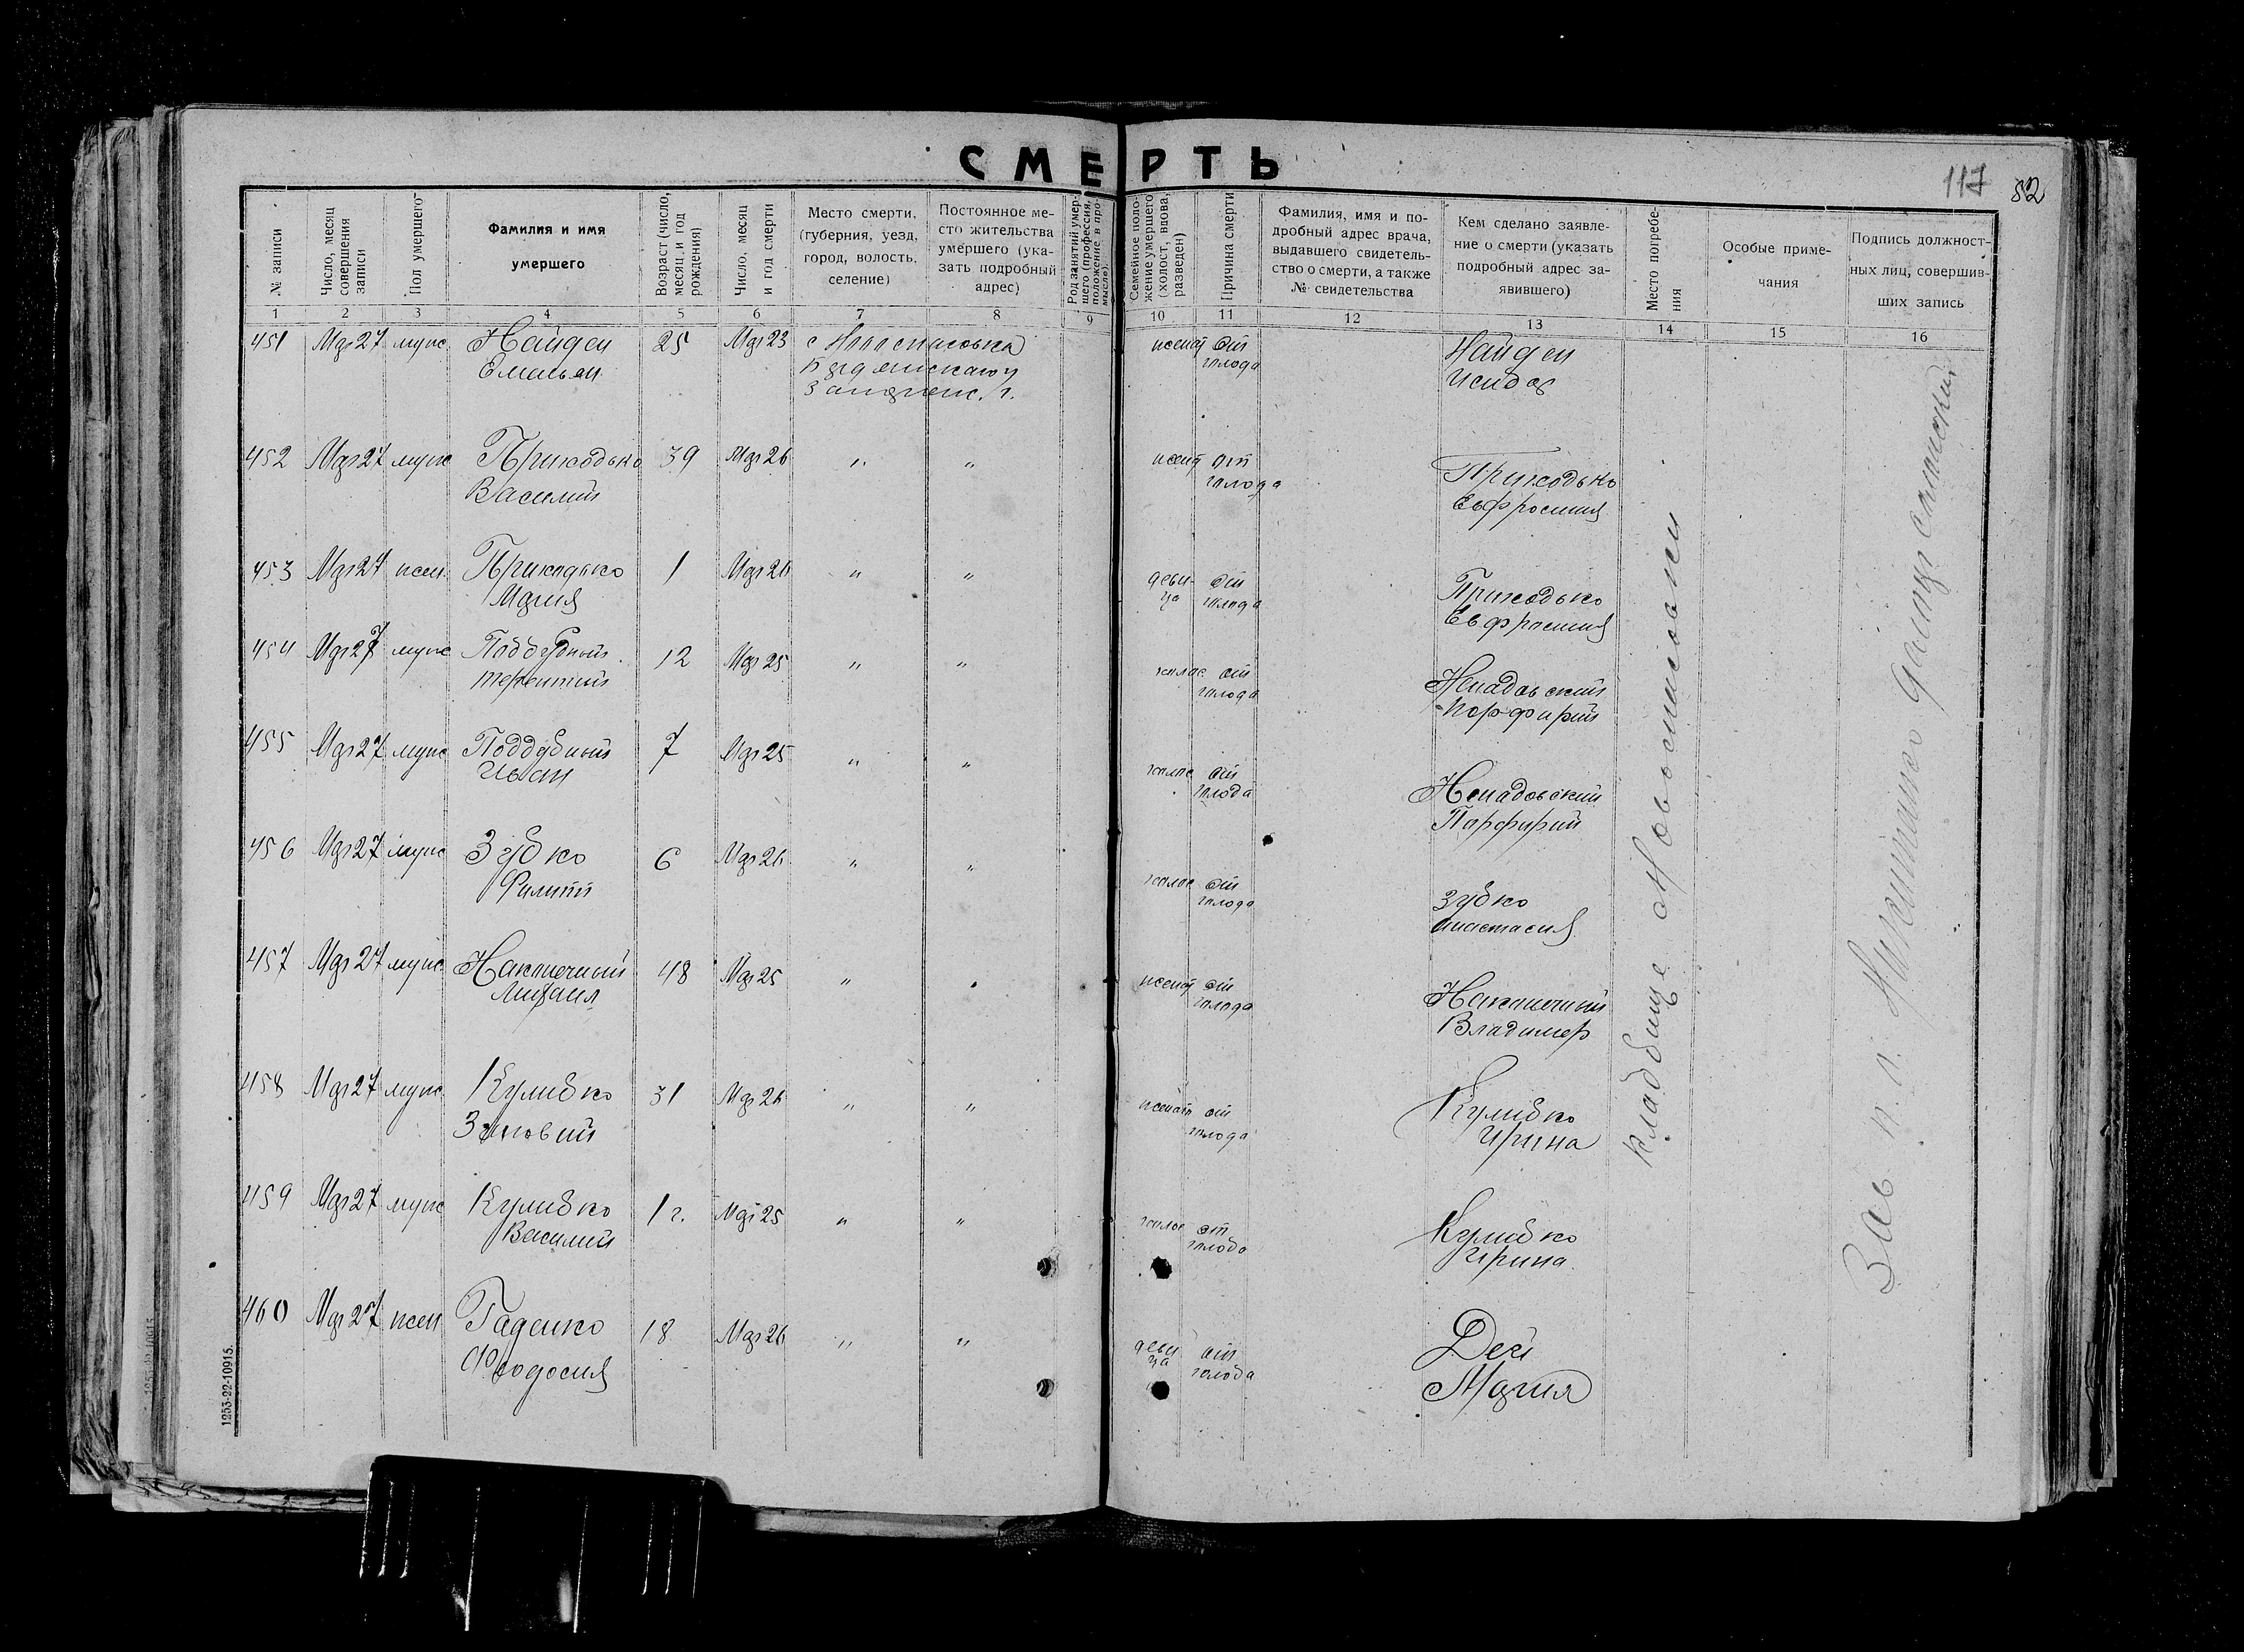 СМЕРТЬ
117 52
№ записи
Число, месяц совершения записи
Пол умершего
Фамилия и имя умершего
Возраст (число, месяц и год рождения)
Число, месяц и год смерти
Место смерти, (губерния, уезд, город, волость, селение)
Постоянное место жительства умершего (указать подробный адрес)
Род занятий умершего (профессия, положение в промысле).
Семейное положение умершего (холост, вдова, разведен)
Причина смерти
Фамилия, имя и подробный адрес врача, выдавшего свидетельство о смерти, а также № свидетельства
Кем сделано заявление о смерти (указать подробный адрес заявившего)
Место погребения
Особые примечания
Подпись должностных лиц, совершивших запись
1 2 3 4 5 6 7 8 9 10 11 12 13 14 15 16
451 Мар 27 муж Найден 25 Мар 23 женат от Найден
Емельян голода Исидор
452 Мар 27 муж Приходько 39 Мар 26 " " женат от Приходько
Василий голода Евфросиния
453 Мар 27 жен Приходько 1 Мар 26 " " деви- от Приходько
Мария ца голода Евфросиния
454 Мар 27 муж Поддубный 12 Мар 25 " " холос от Ненадовский
Терентий голода Порфирий
455 Мар 27 муж Поддубный 7 Мар 25 " " холос от Ненадовский
Иван голода Порфирий
456 Мар 27 муж Зубко 6 Мар 26 " " холос от Зубко
Филипп голода Анастасия
457 Мар 27 муж Наконечный 48 Мар 25 " женат от Наконечный
Михаил голода Владимер
458 Мар 27 муж Кулибко 31 Мар 26 " " женат от Кулибко
Зиновий голода Ирина
459 Мар 27 муж Кулибко 1 г. Мар 25 " " холос от Кулибко
Василий голода Ирина
460 Мар 27 жен Гаденко 18 Мар 26 " " деви от Дей
Феодосия ца голода Мария
кладбище
Зав п. п.
1253-22-10915.